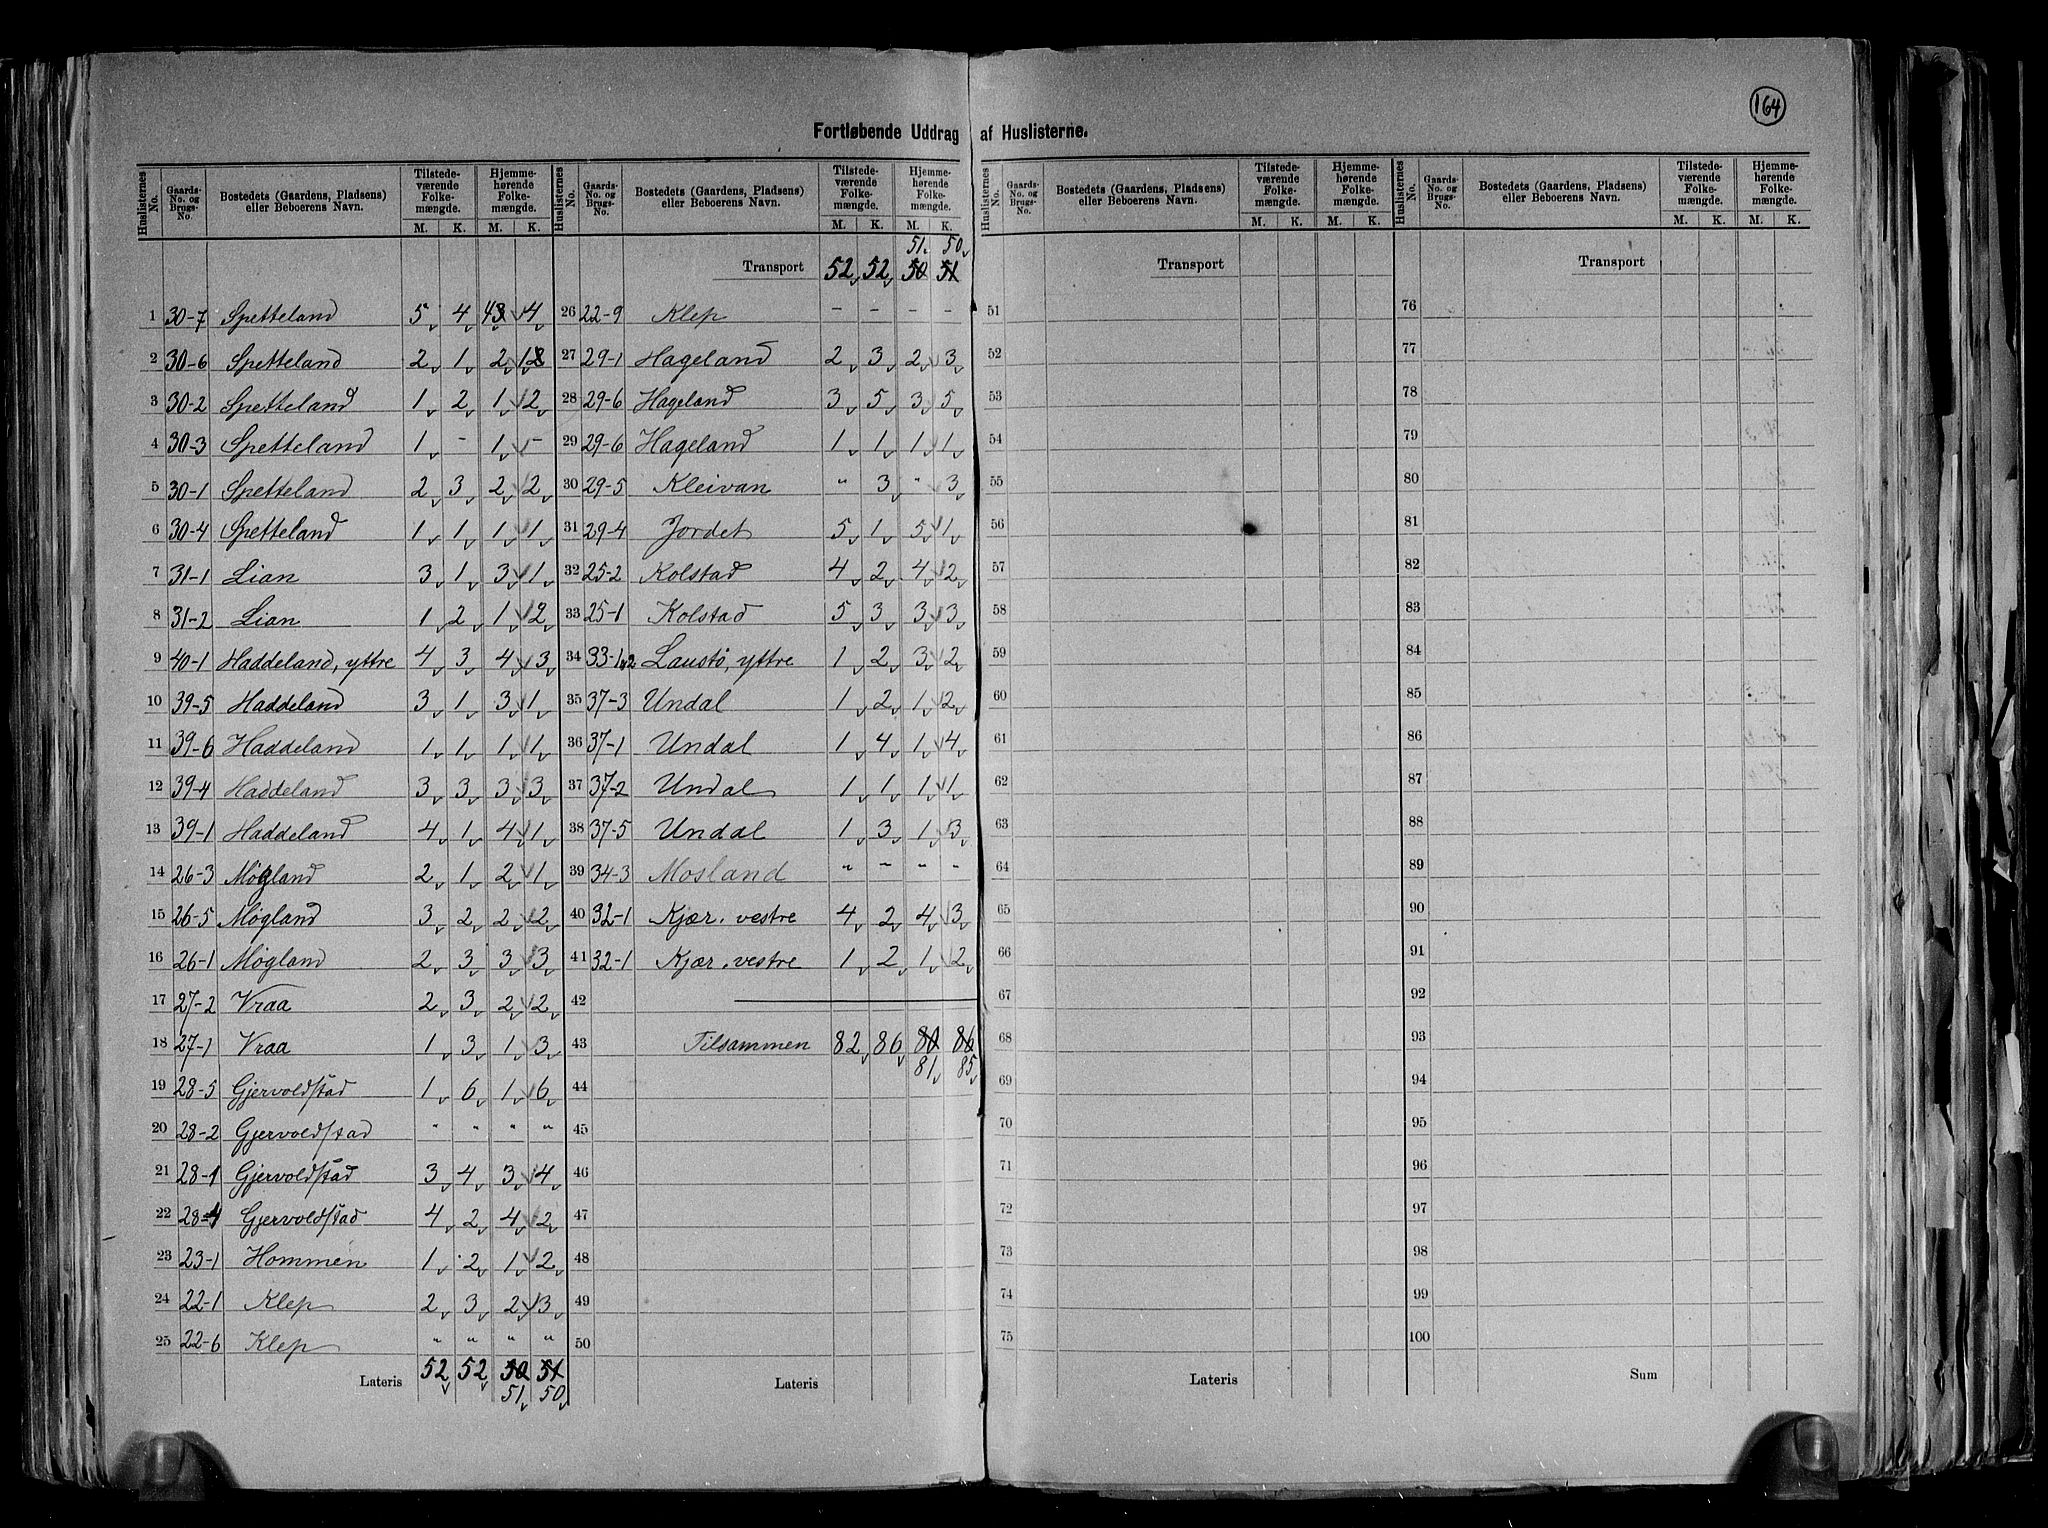 164
Fortløbende Uddrag af Huslisterne.
Huslisternes No. | Gaards-No. og Brugs-No. | Bostedets (Gaardens, Pladsens) eller Beboerens Navn. | Tilstedeværende Folkemængde. M. K. | Hjemmehørende Folkemængde. M. K.
1 30-7 Spetteland 5 4 4 4
2 30-6 Spetteland 2 1 2 1
3 30-2 Spetteland 1 2 1 2
4 30-3 Spetteland 1 - 1 -
5 30-1 Spetteland 2 3 2 2
6 30-4 Spetteland 1 1 1 1
7 31-1 Lian 3 1 3 1
8 31-2 Lian 1 2 1 2
9 40-1 Haddeland, yttre 4 3 4 3
10 39-5 Haddeland 3 1 3 1
11 39-6 Haddeland 1 1 1 1
12 39-4 Haddeland 3 3 3 3
13 39-1 Haddeland 4 1 4 1
14 26-3 Møgland 2 1 2 1
15 26-5 Møgland 3 2 2 2
16 26-1 Møgland 2 3 3 3
17 27-2 Vraa 2 3 2 2
18 27-1 Vraa 1 3 1 3
19 28-5 Gjervoldstad 1 6 1 6
20 28-2 Gjervoldstad " " " "
21 28-1 Gjervoldstad 3 4 3 4
22 28-4 Gjervoldstad 4 2 4 2
23 23-1 Hommen 1 2 1 2
24 22-1 Klep 2 3 2 3
25 22-6 Klep " " " "
Lateris 52 52 50 51
51 50
Huslisternes No. | Gaards-No. og Brugs-No. | Bostedets (Gaardens, Pladsens) eller Beboerens Navn. | Tilstedeværende Folkemængde. M. K. | Hjemmehørende Folkemængde. M. K.
51 50
Transport 52 52 50 51
26 22-9 Klep - - - -
27 29-1 Hageland 2 3 2 3
28 29-6 Hageland 3 5 3 5
29 29-6 Hageland 1 1 1 1
30 29-5 Kleivan " 3 " 3
31 29-4 Jordet 5 1 5 1
32 25-2 Kolstad 4 2 4 2
33 25-1 Kolstad 5 3 3 3
34 33-1,2 Laustø, yttre 1 2 3 2
35 37-3 Undal 1 2 1 2
36 37-1 Undal 1 4 1 4
37 37-2 Undal 1 1 1 1
38 37-5 Undal 1 3 1 3
39 34-3 Mosland " " " "
40 32-1 Kjær, vestre 4 2 4 3
41 32-1 Kjær, vestre 1 2 1 2
42
43 Tilsammen 82 86 80 86
81 85
44
45
46
47
48
49
50
Lateris
Huslisternes No. | Gaards-No. og Brugs-No. | Bostedets (Gaardens, Pladsens) eller Beboerens Navn. | Tilstedeværende Folkemængde. M. K. | Hjemmehørende Folkemængde. M. K.
Transport
51
52
53
54
55
56
57
58
59
60
61
62
63
64
65
66
67
68
69
70
71
72
73
74
75
Lateris
Huslisternes No. | Gaards-No. og Brugs-No. | Bostedets (Gaardens, Pladsens) eller Beboerens Navn. | Tilstedeværende Folkemængde. M. K. | Hjemmehørende Folkemængde. M. K.
Transport
76
77
78
79
80
81
82
83
84
85
86
87
88
89
90
91
92
93
94
95
96
97
98
99
100
Sum